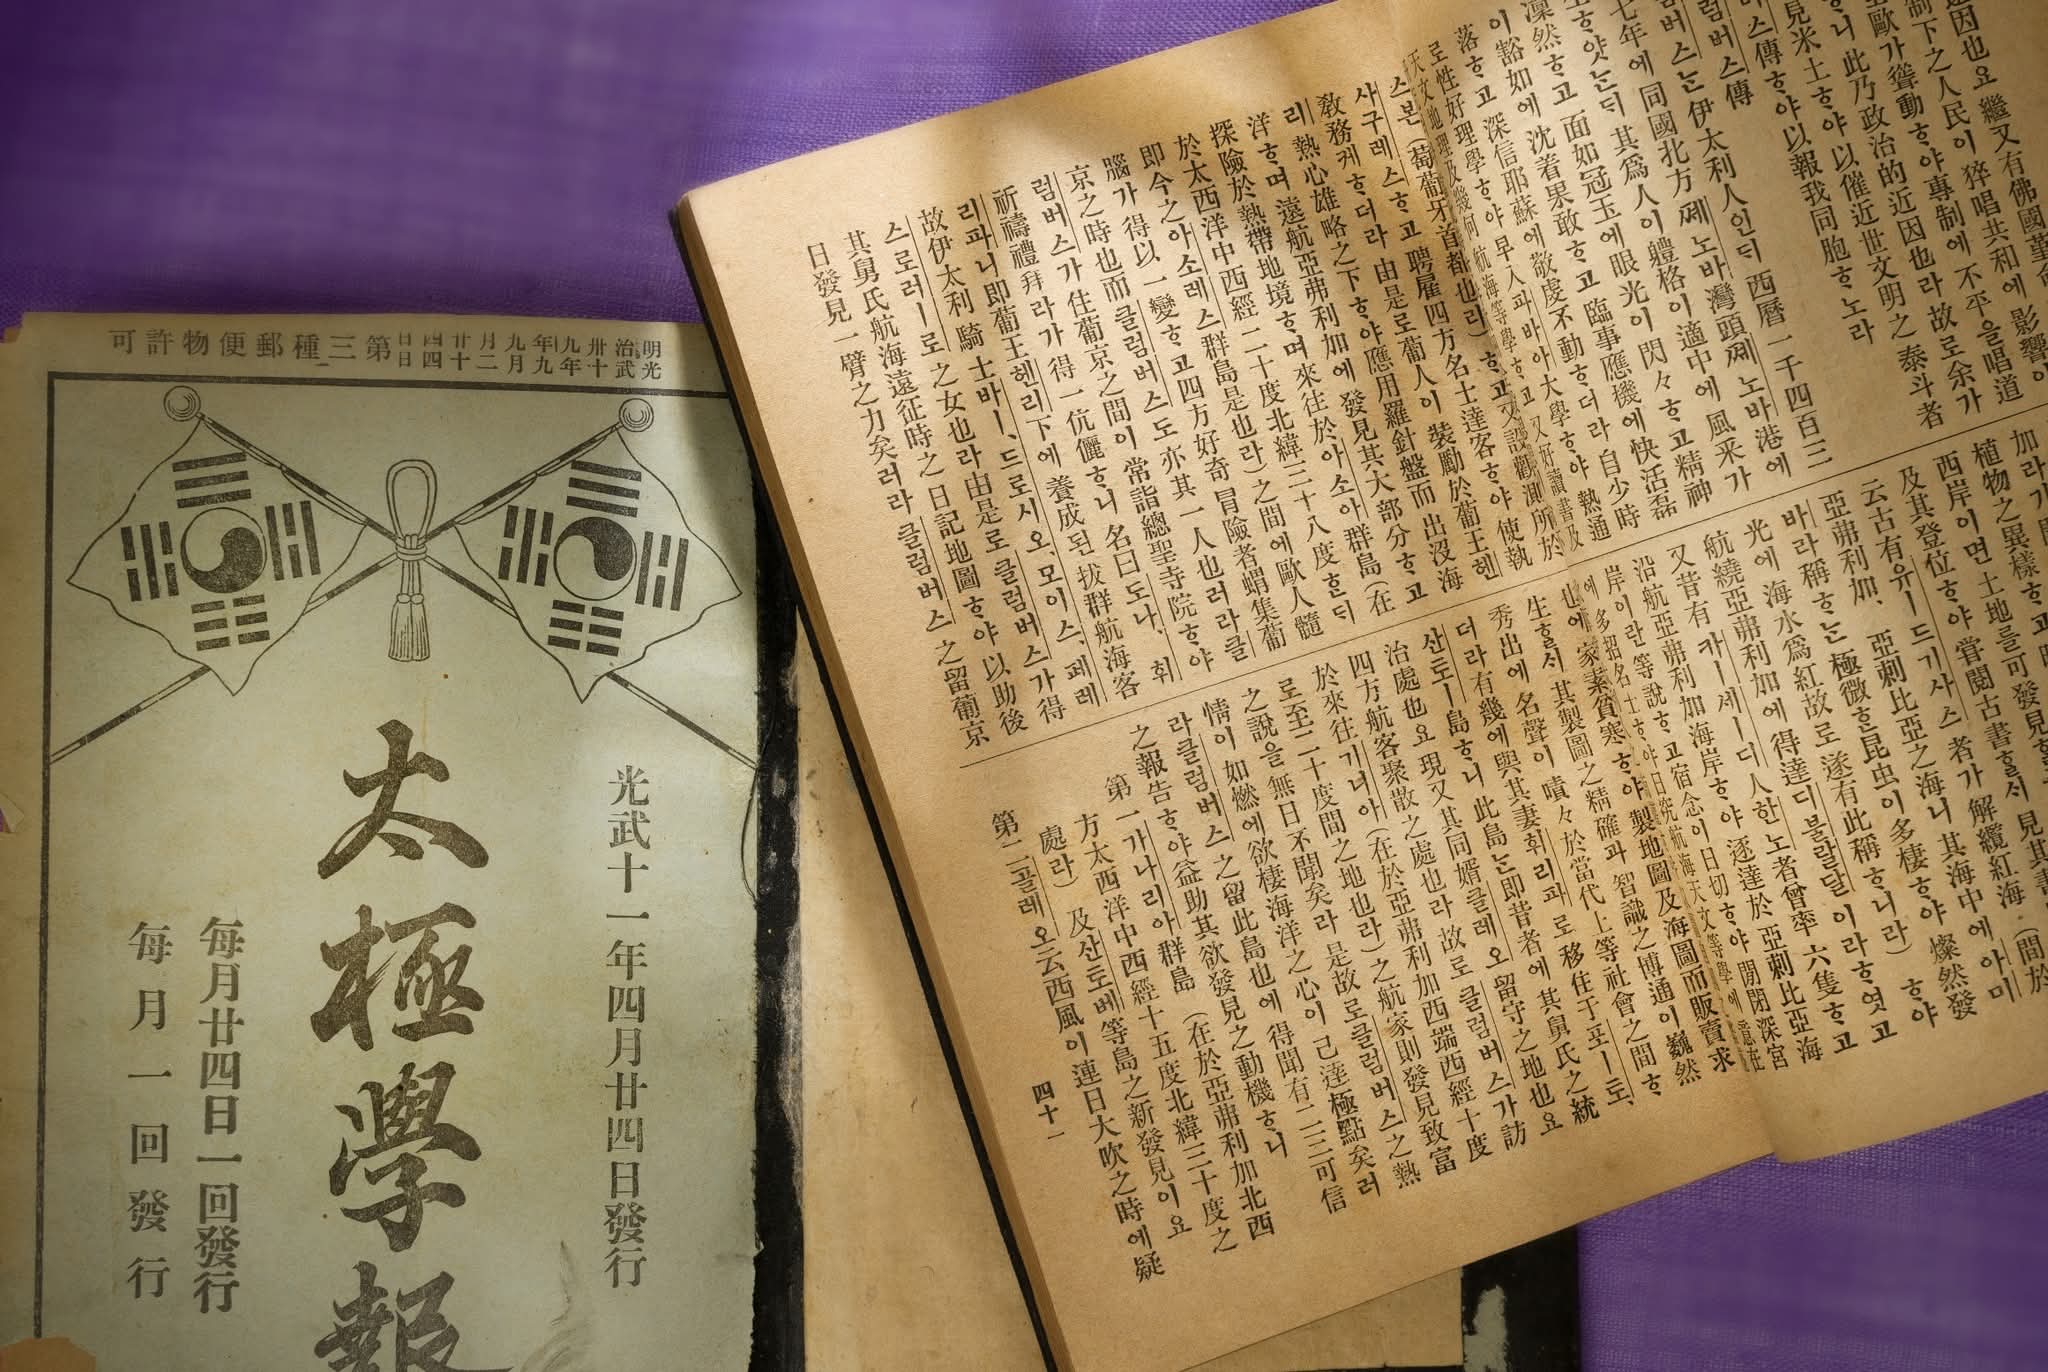 明治卅九年九月廿四日
光武十年九月二十四日
第三種郵便物許可
光武十一年四月廿四日發行
太極學報
每月廿四日一回發行
每月一回發行
因也요 繼又有佛國革命
制下之人民이 猝唱共和에 影響이
歐가聳動ᄒᆞ야專制에 不平을唱道
ᄒᆞ니 此乃政治的近因也라 故로余가
見米土ᄒᆞ야以催近世文明之泰斗者
스傳ᄒᆞ야以報我同胞ᄒᆞ노라
럼버스傳
럼버스ᄂᆞᆫ伊太利人인ᄃᆡ 西曆一千四百三
七年에 同國北方쩨노바灣頭쩨노바港에
ᄒᆞ얏ᄂᆞᆫᄃᆡ 其爲人이軆格이適中에 風采가
凜然ᄒᆞ고 面如冠玉에眼光이閃々ᄒᆞ고精神
이豁如에沈着果敢ᄒᆞ고 臨事應機에快活磊
落ᄒᆞ고 深信耶蘇에敬虔不動ᄒᆞ더라 自少時
로性好理學ᄒᆞ야早入파바아大學ᄒᆞ야 熱通
天文地理及幾何航海等學ᄒᆞ고 又好讀書及
스본(葡萄牙首都也라)
사구레스ᄒᆞ고 聘雇四方名士達客ᄒᆞ야使執
敎務케ᄒᆞ더라 由是로葡人이 裝勵於葡王헨
리熱心雄略之下ᄒᆞ야應用羅針盤而出沒海
洋ᄒᆞ며遠航亞弗利加에 發見其大部分ᄒᆞ고
探險於熱帶地境ᄒᆞ며來往於아소아群島(在
於太西洋中西經二十度北緯三十八度ᄒᆞᆫᄃᆡ
即今之아소레스群島是也라)之間에歐人髓
腦가得以一變ᄒᆞ고四方好奇冒險者蝟集葡
京之時也而클럼버스도亦其一人也러라클
럼버스가住葡京之間이 常詣總聖寺院ᄒᆞ야
祈禱禮拜라가得一伉儷ᄒᆞ니 名曰도나、휘
리파니即葡王헨리下에 養成된拔群航海客
故伊太利騎士바ー、드로시오、모이스、페레
스로러ー로之女也라由是로 클럼버스가得
其舅氏航海遠征時之日記地圖ᄒᆞ야以助後
日發見一臂之力矣러라 클럼버스之留葡京
植物之異樣ᄒᆞ고
西岸이면土地를可發見
及其登位ᄒᆞ야 嘗閱古書ᄒᆞᆯᄉᆡ見其
云古有유ー드기사스者가解纜紅海(間於
亞弗利加、亞刺比亞之海니其海中에
바라稱ᄒᆞᄂᆞᆫ極微ᄒᆞᆫ昆虫이多棲ᄒᆞ야 燦然發
光에海水爲紅故로 遂有此稱ᄒᆞ니라)ᄒᆞ야
航繞亞弗利加에得達디불랄달이라ᄒᆞ엿고
又昔有카ー세ー디人한노者曾率六隻ᄒᆞ고
沿航亞弗利加海岸ᄒᆞ야 逐達於亞刺比亞海
岸이란等說ᄒᆞ고宿念이日切ᄒᆞ야 閒閉深宮
生ᄒᆞᆯᄉᆡ其製圖之精確과智識之博通이巍然
秀出에名聲이嘖々於當代上等社會之間ᄒᆞ
더라有幾에與其妻휘리파로移住于포ー도、
산도ー島ᄒᆞ니此島ᄂᆞᆫ即昔者에其舅氏之統
治處也요現又其同婿클레오留守之地也요
四方航客聚散之處也라故로클럼버스가訪
於來往기너아(在於亞弗利加西端西經十度
로至二十度間之地也라)之航家則發見致富
之說을無日不聞矣라是故로클럼버스之熱
情이如燃에欲棲海洋之心이 已達極點矣러
라클럼버스之留此島也에得聞有二三可信
之報告ᄒᆞ야益助其欲發見之動機ᄒᆞ니
第一가나리아群島(在於亞弗利加北西
方太西洋中西經十五度北緯三十度之
處라)及산도베等島之新發見이요
第二골레오云西風이連日大吹之時에疑
四十一